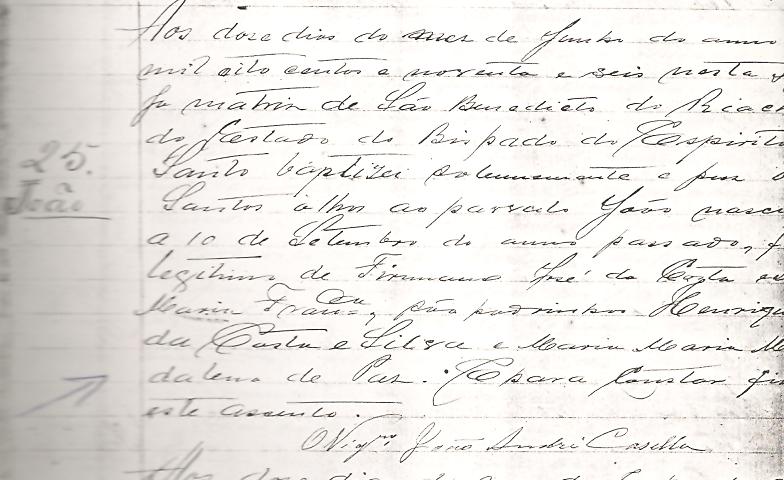 Aos doze dias do mez de Junho do anno
mil oito centos e noventa e seis nesta
ja matriz de São Benedicto do Riach
do Estado do Bispado do Espirito
25. Santo baptizei solemnemente e puz os
João Santos olhos ao parvulo João nasci
a 10 de Setembro do anno passado, f
legitimo de Firmiano José da Costa e
Maria Fran.ca, são padrinhos Henriqu
da Costa e Silva e Maria Maria Ma
dalena de Paz. E para constar fiz
este assento.
O Vigr.o João André Casella
Aos doze dias